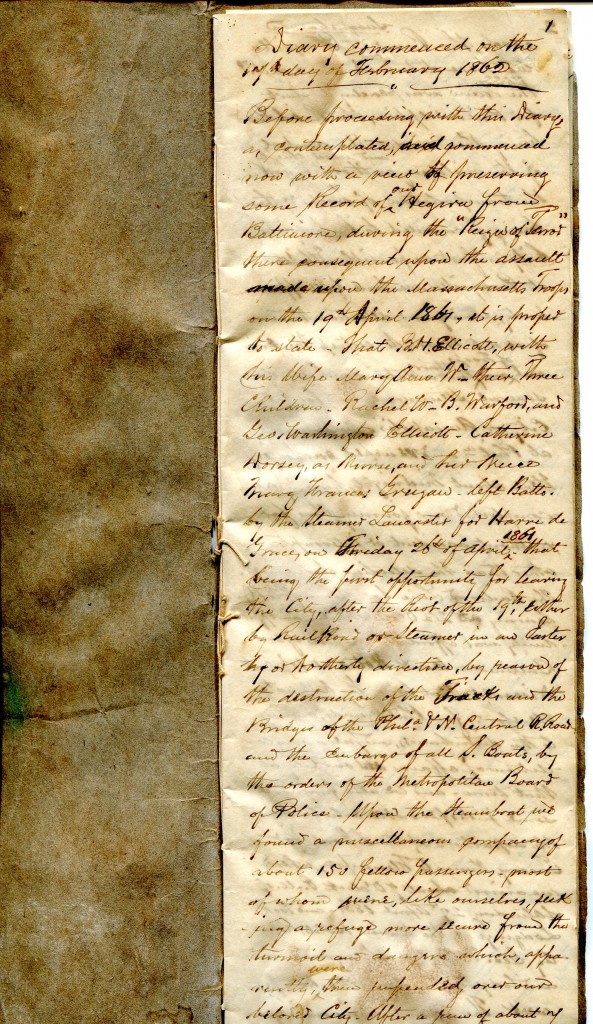 1
Diary commenced on the
17th day of February 1862
Before proceeding with this Diary
as contemplated, and commenced
now with a view of preserving
some Record of our Hegira from
Baltimore, during the "Reign of Terror"
there consequent upon the assault
made upon the Massachusetts Troops
on the 19th April 1861, it is proper
to state - That P.H. Ellicott, with
his Wife Mary Ann W - their Three
Children - Rachel W - B. Warford, and
Geo: Washington Ellicott - Catherine
Dorsey, as Nurse, and her Neice
Mary Frances Grugan - left Balto.
by the Steamer Lancaster for Havre de
Grace, on Friday 26th of April, 1861 that
being the first opportunity for leaving
the City, after the Riot of the 19th, either
by Rail Road or Steamer in an Easter
ly or Northerly direction, by reason of
the destruction of the Tracks and the
Bridges of the Phila. & N. Central R. Road
and the embargo of all S. Boats, by
the orders of the Metropolitan Board
of Police - Upon the Steamboat we
found a miscellaneous company of
about 150 fellow passengers - most
of whom were, like ourselves, seek
-ing a refuge more secure from the
turmoil and dangers which, appa
rently, were then impended over our
beloved City. After a run of about